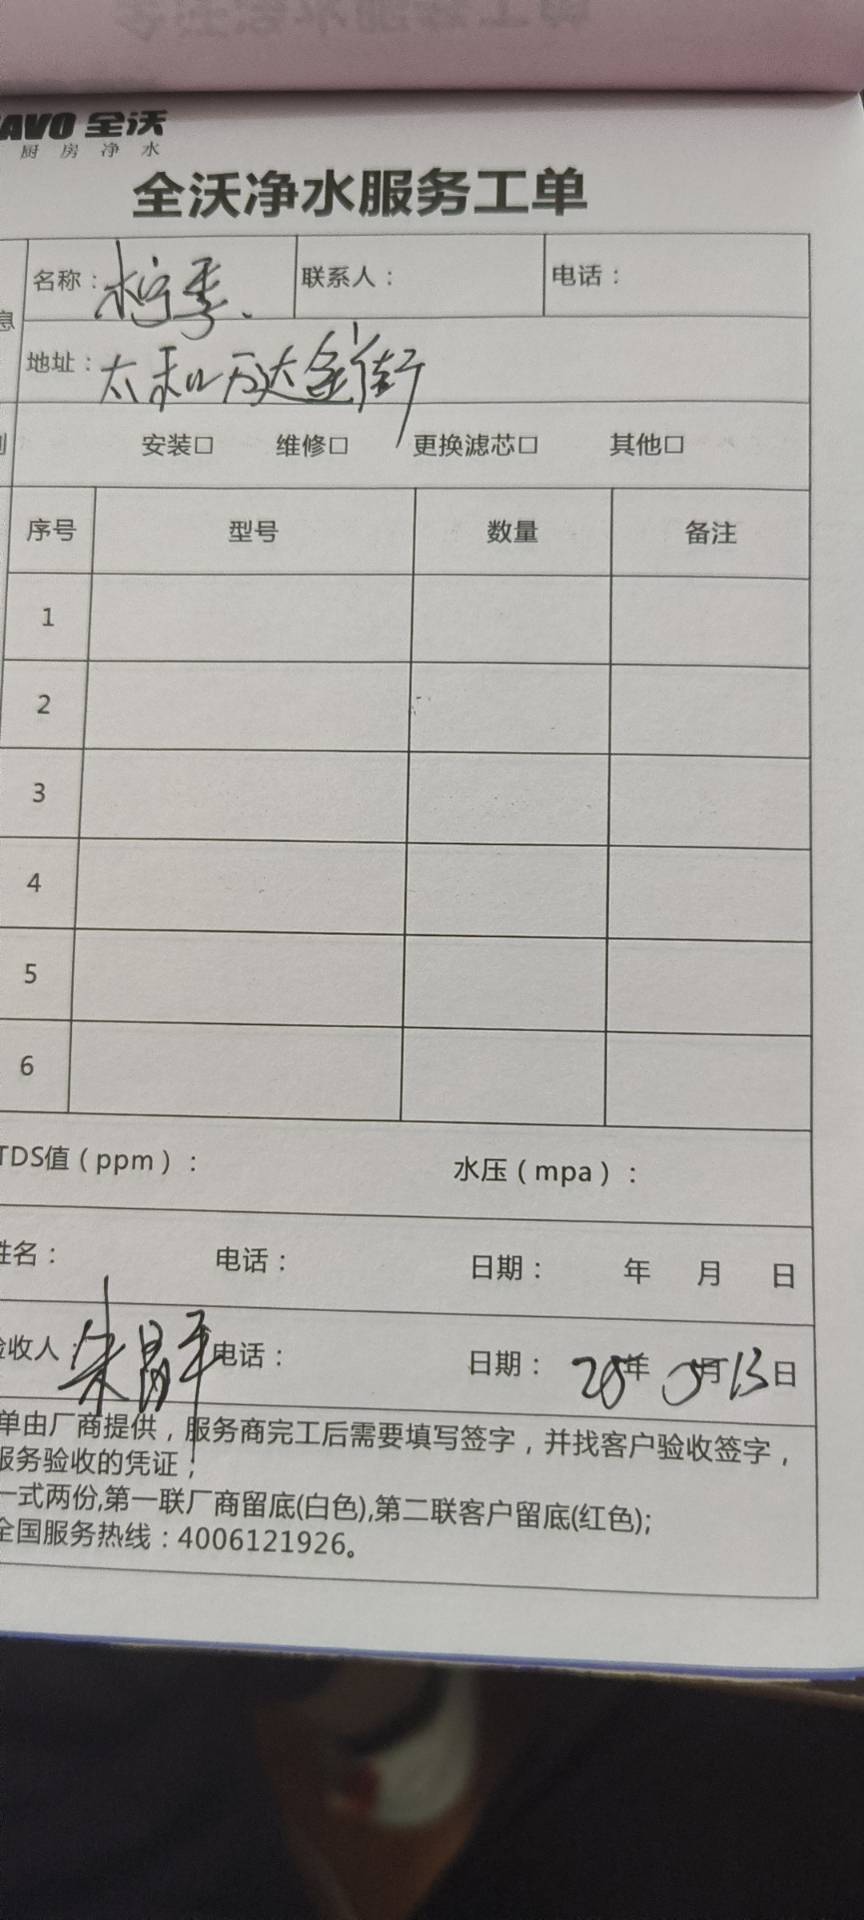 AVO 全沃
厨房净水
全沃净水服务工单
息
名称：柠季. 联系人： 电话：
地址：太和万达金街
别 安装□ 维修□ 更换滤芯□ 其他□
序号 型号 数量 备注
1
2
3
4
5
6
TDS值（ppm）： 水压（mpa）：
姓名： 电话： 日期： 年 月 日
验收人：朱昌平 电话： 日期： 年 月13日
单由厂商提供，服务商完工后需要填写签字，并找客户验收签字，
服务验收的凭证；
一式两份,第一联厂商留底(白色),第二联客户留底(红色);
全国服务热线：4006121926。